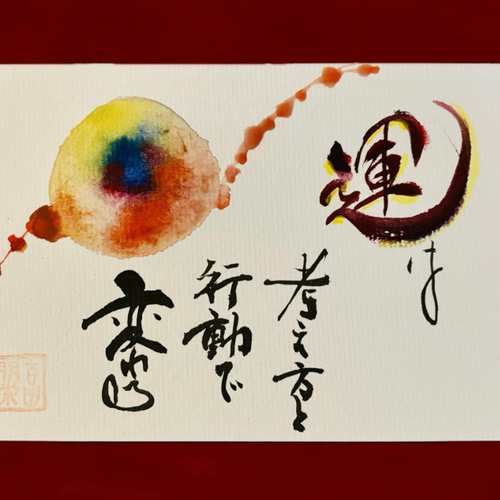 運は
考え方と
行動で
変わる